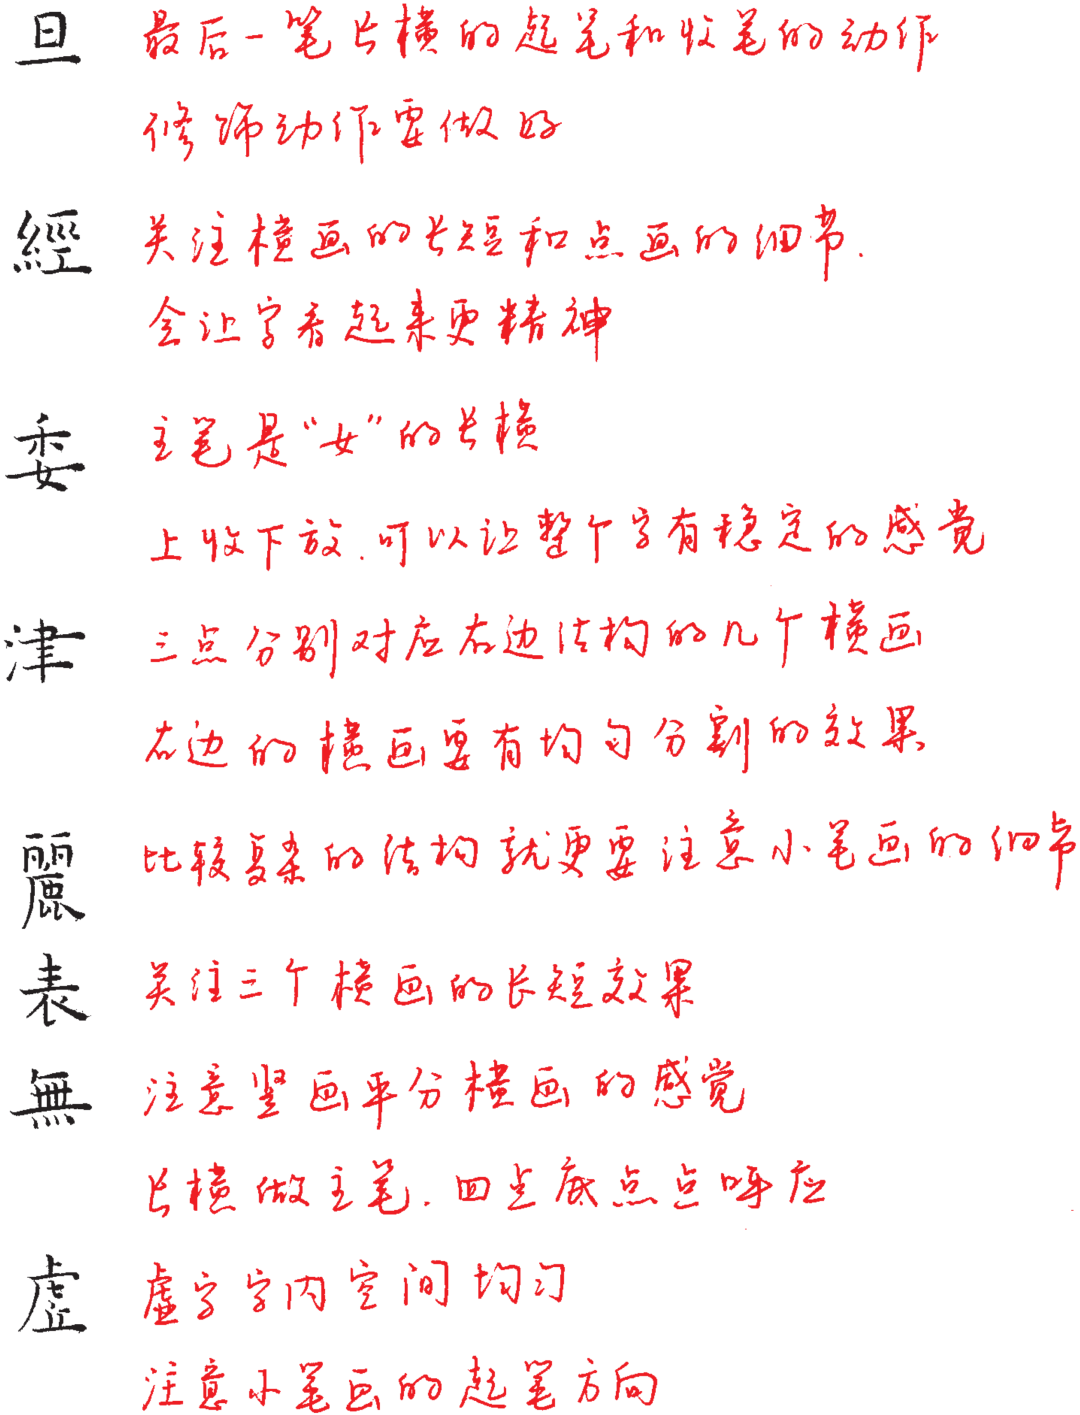 旦 最后一笔长横的起笔和收笔的动作
修饰动作要做好
經 关注横画的长短和点画的细节.
会让字看起来更精神
委 主笔是“女”的长横
上收下放.可以让整个字有稳定的感觉
津 三点分别对应右边结构的几个横画
右边的横画要有均匀分割的效果
麗 比较复杂的结构就更要注意小笔画的细节
表 关注三个横画的长短效果
無 注意竖画平分横画的感觉
长横做主笔.四点底点点呼应
虚 虚字字内空间均匀
注意小笔画的起笔方向